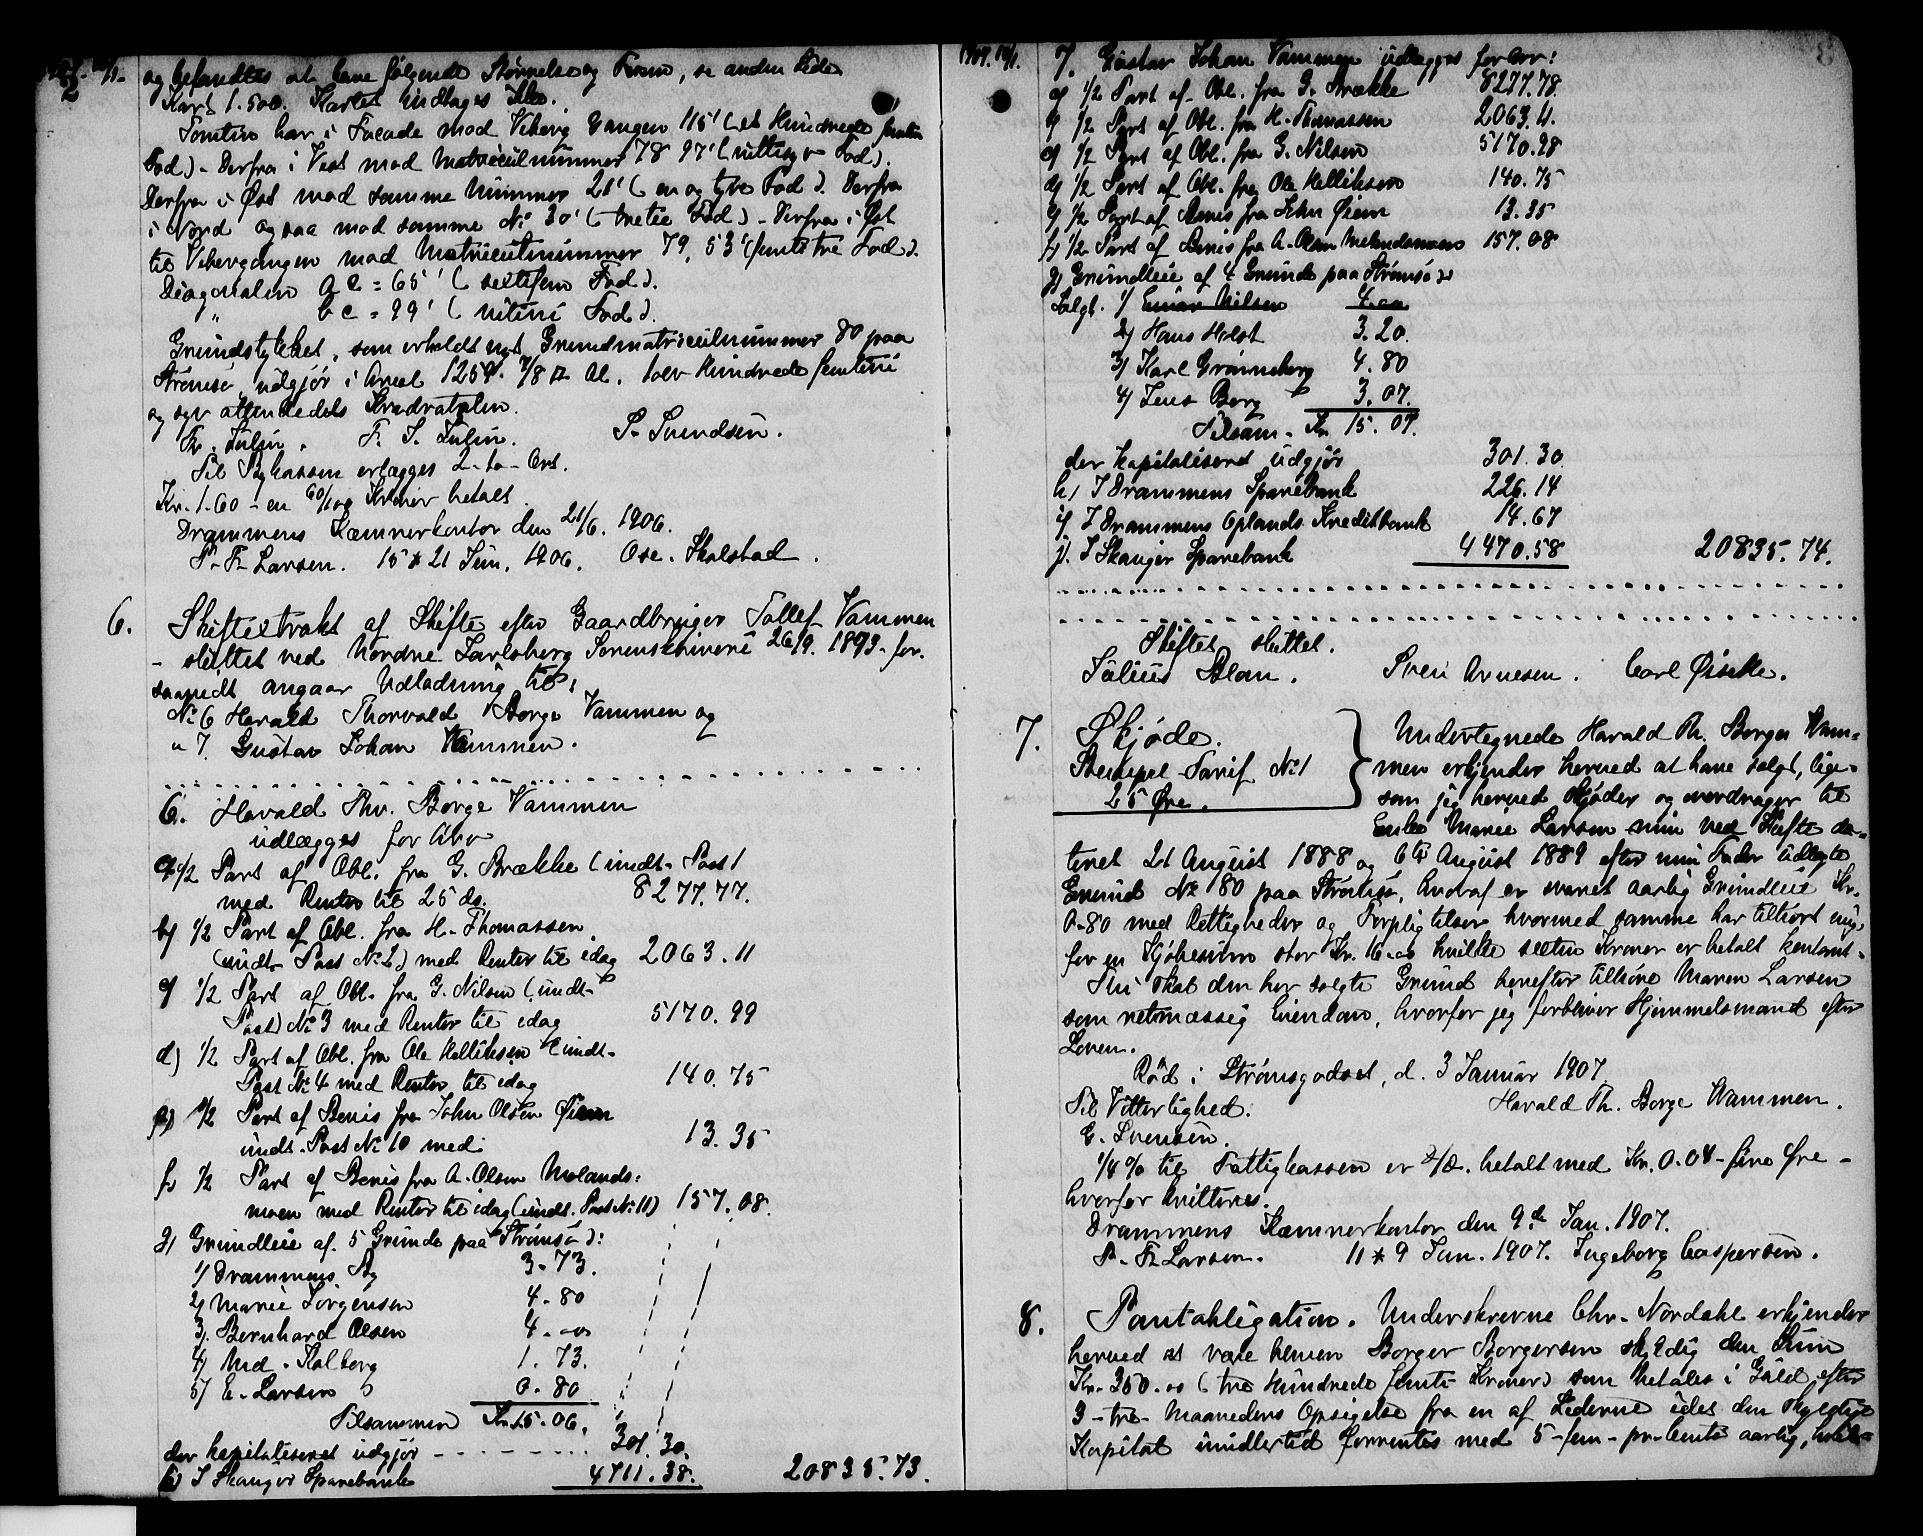 og befandtes at have følgende Størrelse og Form, se anden Side
Kart 1.500. Kartet indtages ikke.
Tomten har i Facade mod Viberg Gangen 115' (et Hundrede femten
Fod) - Derfra i Vest mod Matriculnummer 78 97' (nittisyv Fod).
Derfra i Øst mod samme Nummer 21' (en og tyve Fod). Derfra
i Nord ogsaa mod samme No 30' (tretie Fod) - Derfra i Øst
til Vibergangen mod Matriculnummer 79, 53' (femtitre Fod).
Diagonalen a c = 65' (sextifem Fod).
" b c = 99' (nitini Fod).
Grundstykket, som erholdt nyt Grundmatriculnummer 80 paa
Strømsø, udgjør i Areal 1259. 7/8 □ Al. tolv Hundrede femtini
og syv ottendedels Kvadratalen.
Fr. Julin. F. S. Julin. S. Svendsen.
Til Bykassen erlægges 2 - to - Ort.
Kr. 1.60 - en 60/100 Kroner betalt.
Drammens Kæmnerkontor den 21/6. 1906.
P. Fr. Larsen. 15 * 21 Jun. 1906. Ose. Skalstad.
6. Skifteextrakt af Skifte efter Gaardbruger Tollef Vammen
- sluttet ved Nordre Jarlsberg Sorenskriveri 26/9. 1893 - for-
saavidt angaar Udlodning til:
No 6 Harald Thorvald Borge Vammen og
" 7. Gustav Johan Vammen.
6. Harald Thv. Borge Vammen
udlægges for Arv
a) 1/2 Part af Obl. fra G. Brække (indt. Post 1
med Renter til 25 ds. 8277.77.
b) 1/2 Part af Obl. fra H. Thomassen
(indt. Post No 2) med Renter til idag 2063.11
c) 1/2 Part af Obl. fra G. Nilsen (indt.
Post) No 3 med Renter til idag 5170.99
d) 1/2 Part af Obl. fra Ole Kelliksen (indt.
Post No 4 med Renter til idag 140.75
e) 1/2 Part af Bevis fra John Olsen Øiern
indt. Post No 10 med 13.35
f) 1/2 Part af Bevis fra A. Olsen Melands-
moen med Renter til idag (indt. Post No 11) 157.08.
g) Grundleie af 5 Grunde paa Strømsø:
1) Drammens By 3.73.
2) Marie Jørgensen 4.80
3). Bernhard Olsen 4.00
4) Md. Kalberg 1.73.
5) E. Larsen 0.80
Tilsammen Kr. 15.06.
der kapitaliseret udgjør - - - - 301.30.
h) I Skauger Sparebank 4711.38. 20835.73.
1907. 10/1.
7. Gustav Johan Vammen udlægges for Arv:
a) 1/2 Part af Obl. fra G. Brække 8277.78.
b) 1/2 Part af Obl. fra H. Thomassen 2063.11.
c) 1/2 Part af Obl. fra G. Nilsen 5170.98
d) 1/2 Part af Obl. fra Ole Kelliksen 140.75
e) 1/2 Part af Bevis fra John Øiern 13.35
f) 1/2 Part af Bevis fra A. Olsen Melandsmoen 157.08
g) Grundleie af 4 Grunde paa Strømsø:
Solgt. 1) Einar Nilsen 4.00
2) Hans Holst 3.20.
3) Karl Grønneberg 4.80
4) Jens Borg 3.07.
Tilsam. Kr. 15.07.
der kapitaliseret udgjør 301.30.
h) I Drammens Sparebank 226.14
i) I Drammens Oplands Kreditbank 14.67
j). I Skauger Sparebank 4470.58 20835.74.
Skiftet sluttet.
Julius Blom. Sven Arnesen. Carl Øiseth.
7. Skjøde.
Stempel-Tarif No 1
25 Øre.
Undertegnede Harald Th. Borger Wam-
men erkjender herved at have solgt, lige-
som jeg herved skjøder og overdrager til
Enke Maren Larsen min ved Skifte da-
teret 21 August 1888 og 6te August 1889 efter min Fader udlagte
Grund No 80 paa Strømsø, hvoraf er svaret aarlig Grundleie Kr.
0.80 med Rettigheder og Forpligtelser hvormed samme har tilhørt mig,
for en Kjøbesum stor Kr. 16.00 hvilke sexten Kroner er betalt kontant.
Thi skal den her solgte Grund herefter tilhøre Maren Larsen
som retmæssig Eiendom, hvorfor jeg forbliver Hjemmelsmand efter
Loven.
Rød i Strømsgodset, d. 3 Januar 1907
Til Vitterlighed. Harald Th. Borge Wammen.
G. Svensen.
1/4 % til Fattigkassen er d/D. betalt med Kr. 0.04 - fire Øre -
hvorfor kvitteres.
Drammens Kæmnerkontor den 9de Jan. 1907.
P. Fr. Larsen. 11 * 9 Jan. 1907. Ingeborg Caspersen.
8. Pantobligation. Underskrevne Chr. Nordahl erkjender
herved at være Herren Borger Borgersen skyldig den Sum
Kr. 350.00 (tre Hundrede femti Kroner) som betales i Gjæld efter
3 - tre - Maaneders Opsigelse fra en af Siderne idet den skyldige
Kapital imidlertid forrentes med 5 - fem - pro Cento aarlig,